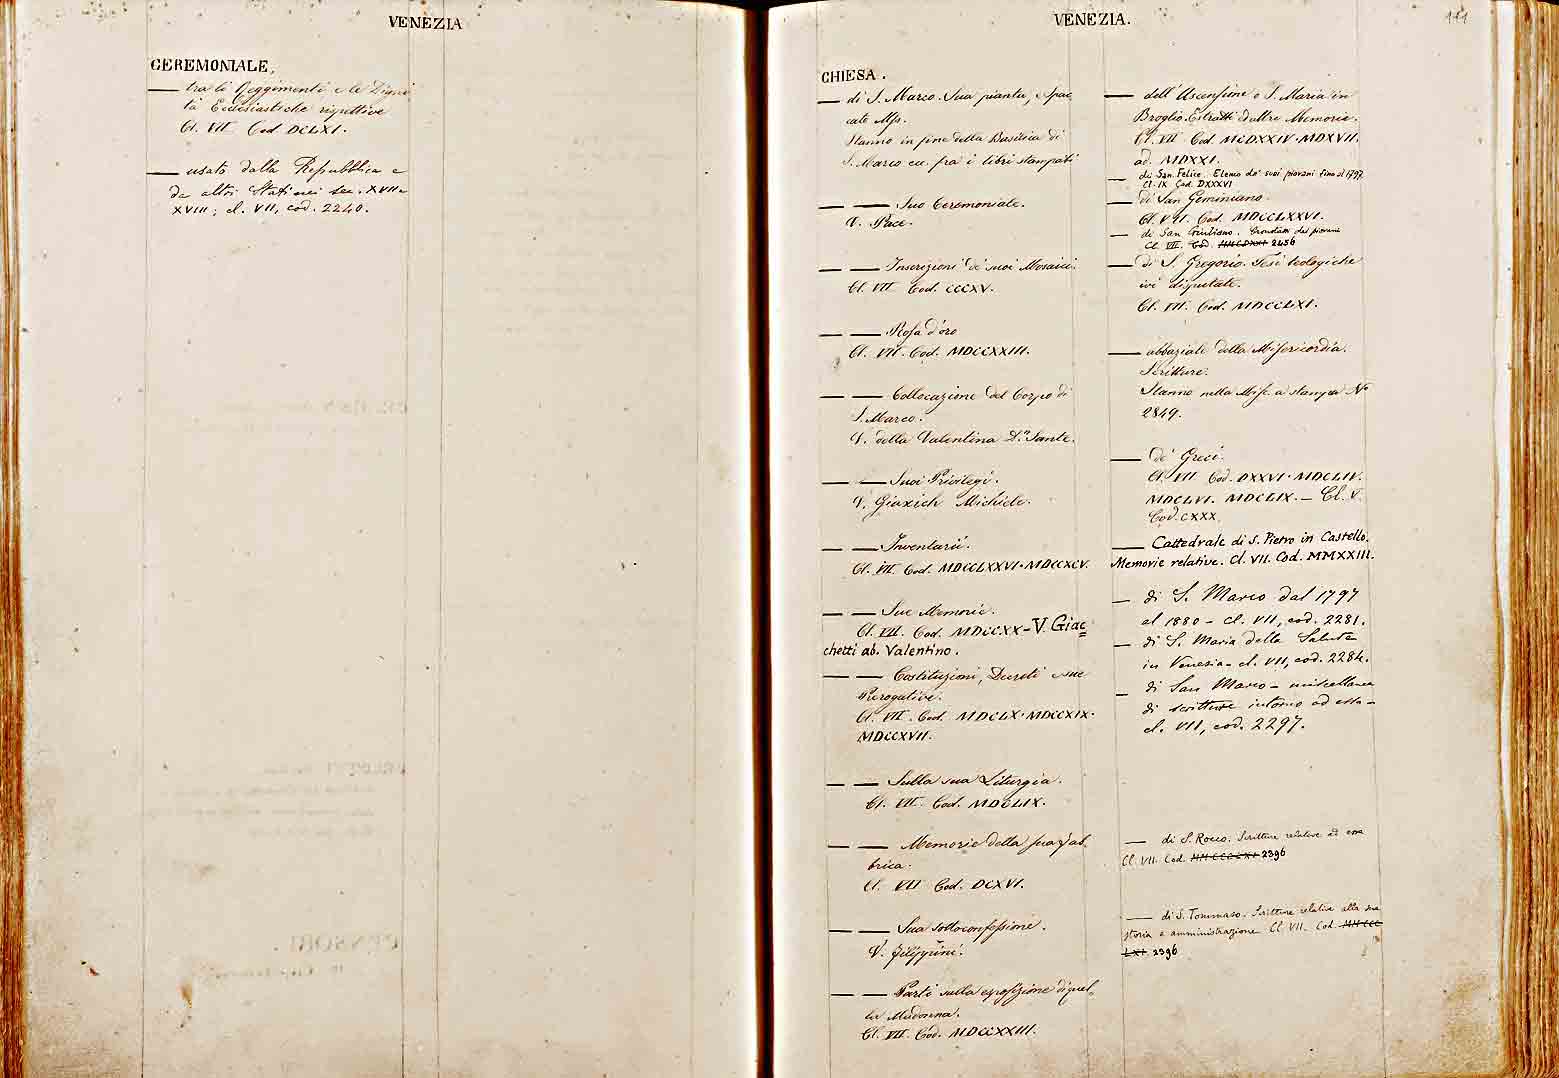 VENEZIA
CEREMONIALE,
— tra li Reggimenti e le Digni
tà Ecclesiastiche rispettive
Cl. VII Cod DCLXI.
— usato dalla Repubblica e
da altri Stati nei sec. XVII e
XVIII; cl. VII, cod. 2240.
VENEZIA.
111
CHIESA.
— di S. Marco. Sua pianta, spac
cato Mss.
Stanno in fine della Basilica di
S. Marco ec. fra i libri stampati
— — Suo Ceremoniale.
V. Pace.
— — Inscrizioni de' suoi Mosaici.
Cl. VII Cod. CCCXV.
— — Rosa d'oro
Cl. VII. Cod. MDCCXXIII.
— — Collocazione del Corpo di
S. Marco.
V. della Valentina D.n Sante.
— — Suoi Privilegi.
V. Giaxich Michiele.
— — Inventarii.
Cl. VII. Cod. MDCCLXXVI. MDCCXCV.
— — Sue Memorie.
Cl. VII. Cod. MDCCXX – V. Giac=
chetti ab. Valentino.
— — Costituzioni, Decreti e sue
Prerogative.
Cl. VII. Cod. MDCLX. MDCCXIX.
MDCCXVII.
— — Sulla sua Liturgia.
Cl. VII. Cod. MDCLIX.
— — Memorie della sua fab,
brica.
Cl. VII Cod. DCXVI.
— — Sua sottoconfessione.
V. Filippini.
— — Parti sulla esposizione di quel,
la Madonna.
Cl. VII Cod. MDCCXXIII.
— dell'Ascensione o S. Maria in
Broglio. Estratti ed altre Memorie.
Cl. VII Cod. MCDXXIV. MDXVII.
ad. MDXXI.
— di San Felice. Elenco de' suoi piovani fino al 1797
Cl. IX Cod. DXXXVI
— di San Geminiano.
Cl. VII. Cod. MDCCLXXVI.
— di San Giuliano. Cronotassi dei piovani
Cl. VII. Cod. 2456
— di S. Gregorio. Tesi teologiche
ivi disputate.
Cl. VII. Cod. MDCCLXI.
— abbaziale della Misericordia.
Scritture.
Stanno nella Misc. a stampa N.o
2849.
— de' Greci.
Cl. VII Cod. DXXVI. MDCLIV.
MDCLVI. MDCLIX. – Cl. V.
Cod. CXXX.
— Cattedrale di S. Pietro in Castello.
Memorie relative. Cl. VII. Cod. MMXXIII.
— di S. Marco dal 1797
al 1880 – cl. VII, cod. 2281.
— di S. Maria della Salute
in Venezia – cl. VII, cod. 2284.
— di San Marco – miscellanea
di scritture intorno ad essa –
cl. VII, cod. 2297.
— di S. Rocco. Scritture relative ad essa
Cl. VII. Cod. 2396
— di S. Tommaso. Scritture relative alla sua
storia e amministrazione Cl. VII. Cod. MMCCC
LXI 2396